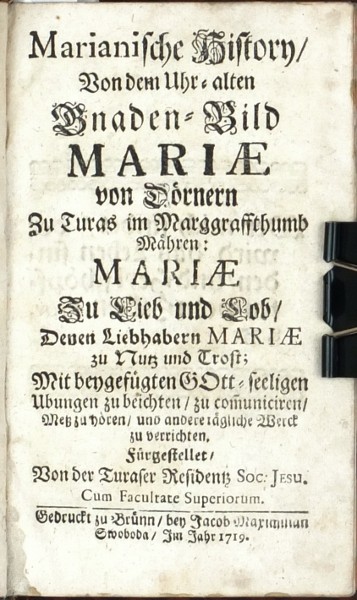 Marianische History/
Von dem Uhr-alten
Gnaden-Bild
MARIÆ
von Dörnern
Zu Turas im Marggraffthumb
Mähren:
MARIÆ
Zu Lieb und Lob/
Denen Liebhabern MARIÆ
zu Nutz und Trost;
Mit beygefügten GOtt-seeligen
Ubungen zu beichten/ zu com̃uniciren/
Meß zu hören/ und andere tägliche Werck
zu verrichten.
Fürgestellet/
Von der Turaser Residentz Soc. Jesu.
Cum Facultate Superiorum.
Gedruckt zu Brünn/ bey Jacob Maximilian
Swoboda/ Im Jahr 1719.